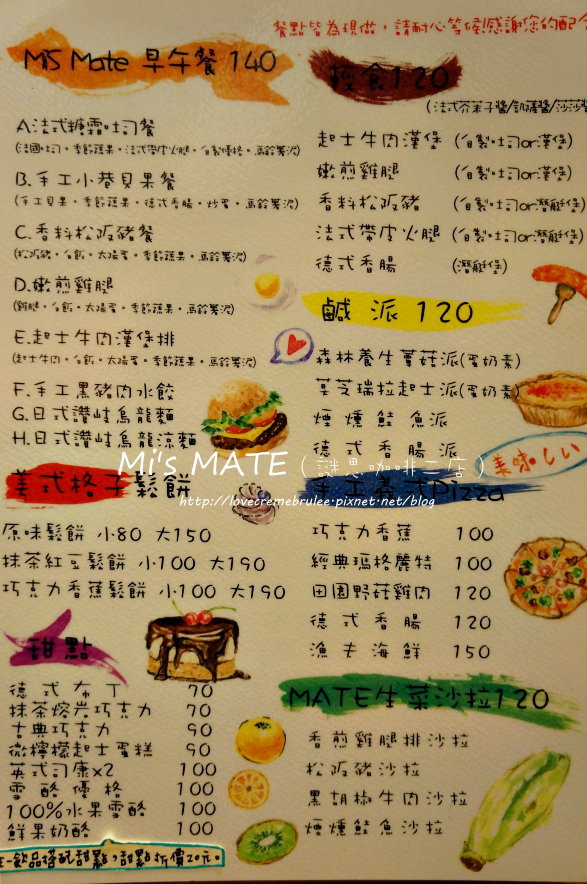 餐點皆為現做，請耐心等候!感謝您的配合
MiS Mate 早午餐 140
A.法式糖霜吐司餐
(法國吐司。季節蔬果。法式帶皮火腿。自製優格。馬鈴薯泥)
B.手工小巷貝果餐
(手工貝果。季節蔬果。德式香腸。炒蛋。馬鈴薯泥)
C.香料松阪豬餐
(松阪豬。白飯。太陽蛋。季節蔬果。馬鈴薯泥)
D.嫩煎雞腿
(雞腿。白飯。太陽蛋。季節蔬果。馬鈴薯泥)
E.起士牛肉漢堡排
(起士牛肉。白飯。太陽蛋。季節蔬果。馬鈴薯泥)
F.手工黑豬肉水餃
G.日式讚岐烏龍麵
H.日式讚岐烏龍涼麵
美式格子鬆餅
原味鬆餅 小80 大150
抹茶紅豆鬆餅 小100 大190
巧克力香蕉鬆餅 小100 大190
甜點
德式布丁 70
抹茶熔岩巧克力 70
古典巧克力 90
微檸檬起士蛋糕 90
英式司康x2 100
雪酪優格 100
100%水果雪酪 100
鮮果奶酪 100
任一飲品搭配甜點，甜點折價20元。
輕食120
(法式芥茉子醬/凱薩醬/莎莎醬
起士牛肉漢堡 (自製吐司or漢堡)
嫩煎雞腿 (自製吐司or漢堡)
香料松阪豬 (自製吐司or潛艇堡)
法式帶皮火腿 (自製吐司or潛艇堡)
德式香腸 (潛艇堡)
鹹派 120
森林養生蘑菇派(蛋奶素)
莫芝瑞拉起士派(蛋奶素)
煙燻鮭魚派
德式香腸派
美味しい
手工義式Pizza
巧克力香蕉 100
經典瑪格麗特 100
田園野菇雞肉 120
德式香腸 120
漁夫海鮮 150
MATE生菜沙拉120
香煎雞腿排沙拉
松阪豬沙拉
黑胡椒牛肉沙拉
煙燻鮭魚沙拉
Mi's MATE ( 謎思咖啡二店 )
http://lovecremebrulee.pixnet.net/blog